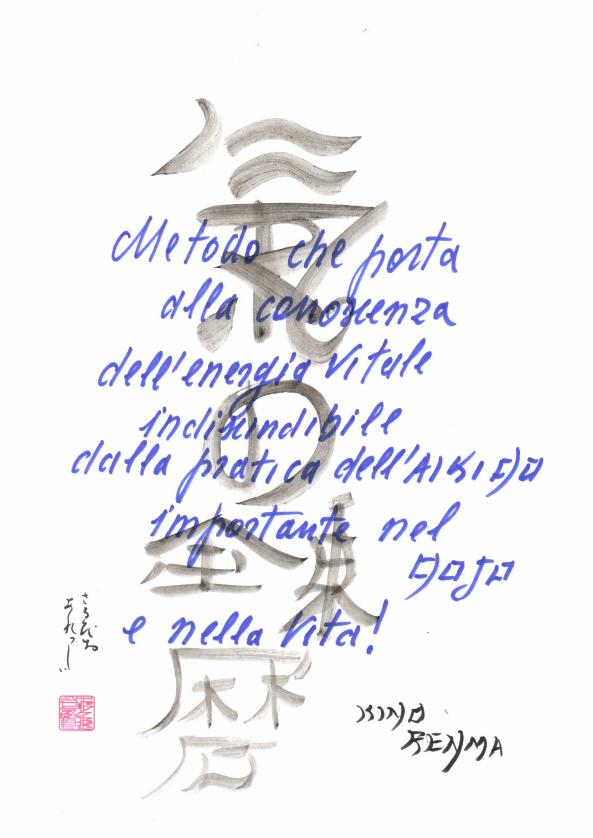 氣の錬磨
Metodo che porta
alla conoscenza
dell'energia Vitale
indiscindibile
dalla pratica dell'AIKIDO
importante nel
DOJO
e nella Vita!
KINO
RENMA